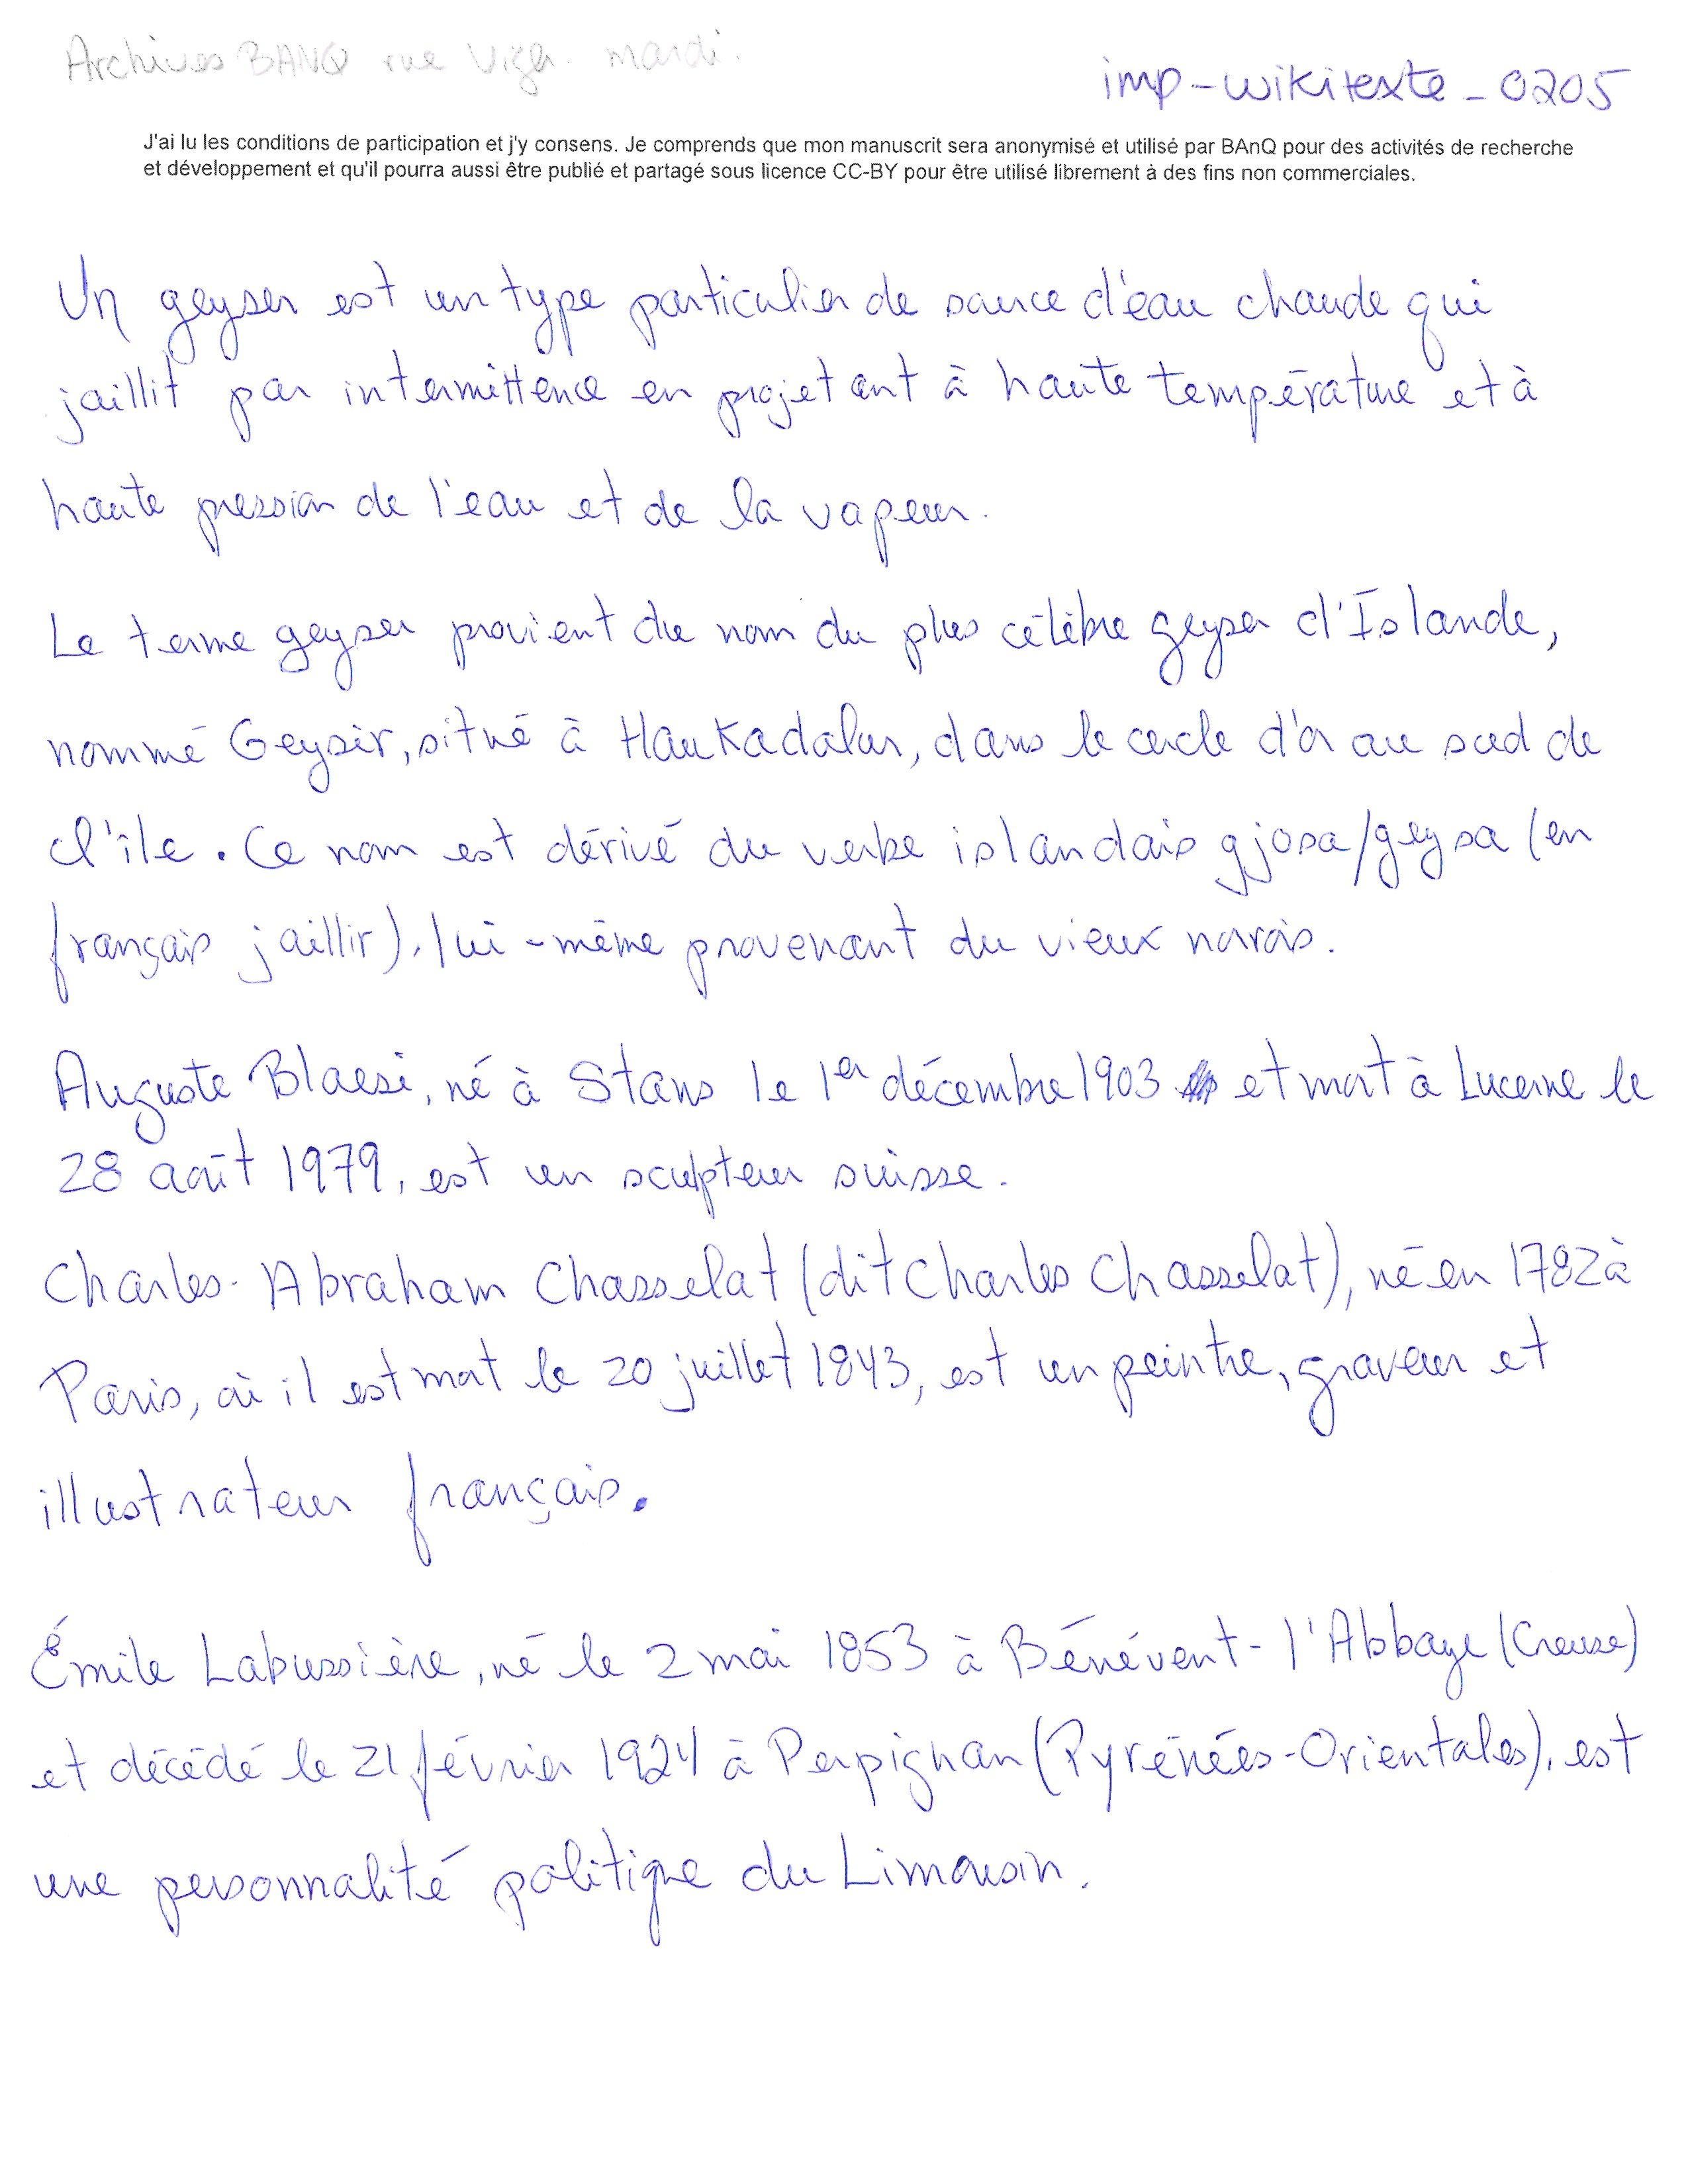 Archives BANQ rue Viger mardi.
imp-wikitexte_0205
J'ai lu les conditions de participation et j'y consens. Je comprends que mon manuscrit sera anonymisé et utilisé par BAnQ pour des activités de recherche
et développement et qu'il pourra aussi être publié et partagé sous licence CC-BY pour être utilisé librement à des fins non commerciales.
Un geyser est un type particulier de source d'eau chaude qui
jaillit par intermittence en projetant à haute température et à
haute pression de l'eau et de la vapeur.
Le terme geyser provient du nom du plus célèbre geyser d'Islande,
nommé Geysir, situé à Haukadalur, dans le cercle d'or au sud de
l'île. Ce nom est dérivé du verbe islandais gjosa/geysa (en
français jaillir), lui-même provenant du vieux norois.
Auguste Blaesi, né à Stans le 1er décembre 1903 et mort à Lucerne le
28 août 1979, est un sculpteur suisse.
Charles-Abraham Chasselat (dit Charles Chasselat), né en 1782 à
Paris, où il est mort le 20 juillet 1843, est un peintre, graveur et
illustrateur français.
Émile Labussière, né le 2 mai 1853 à Bénévent-l'Abbaye (Creuse)
et décédé le 21 février 1924 à Perpignan (Pyrénées-Orientales), est
une personnalité politique du Limousin.